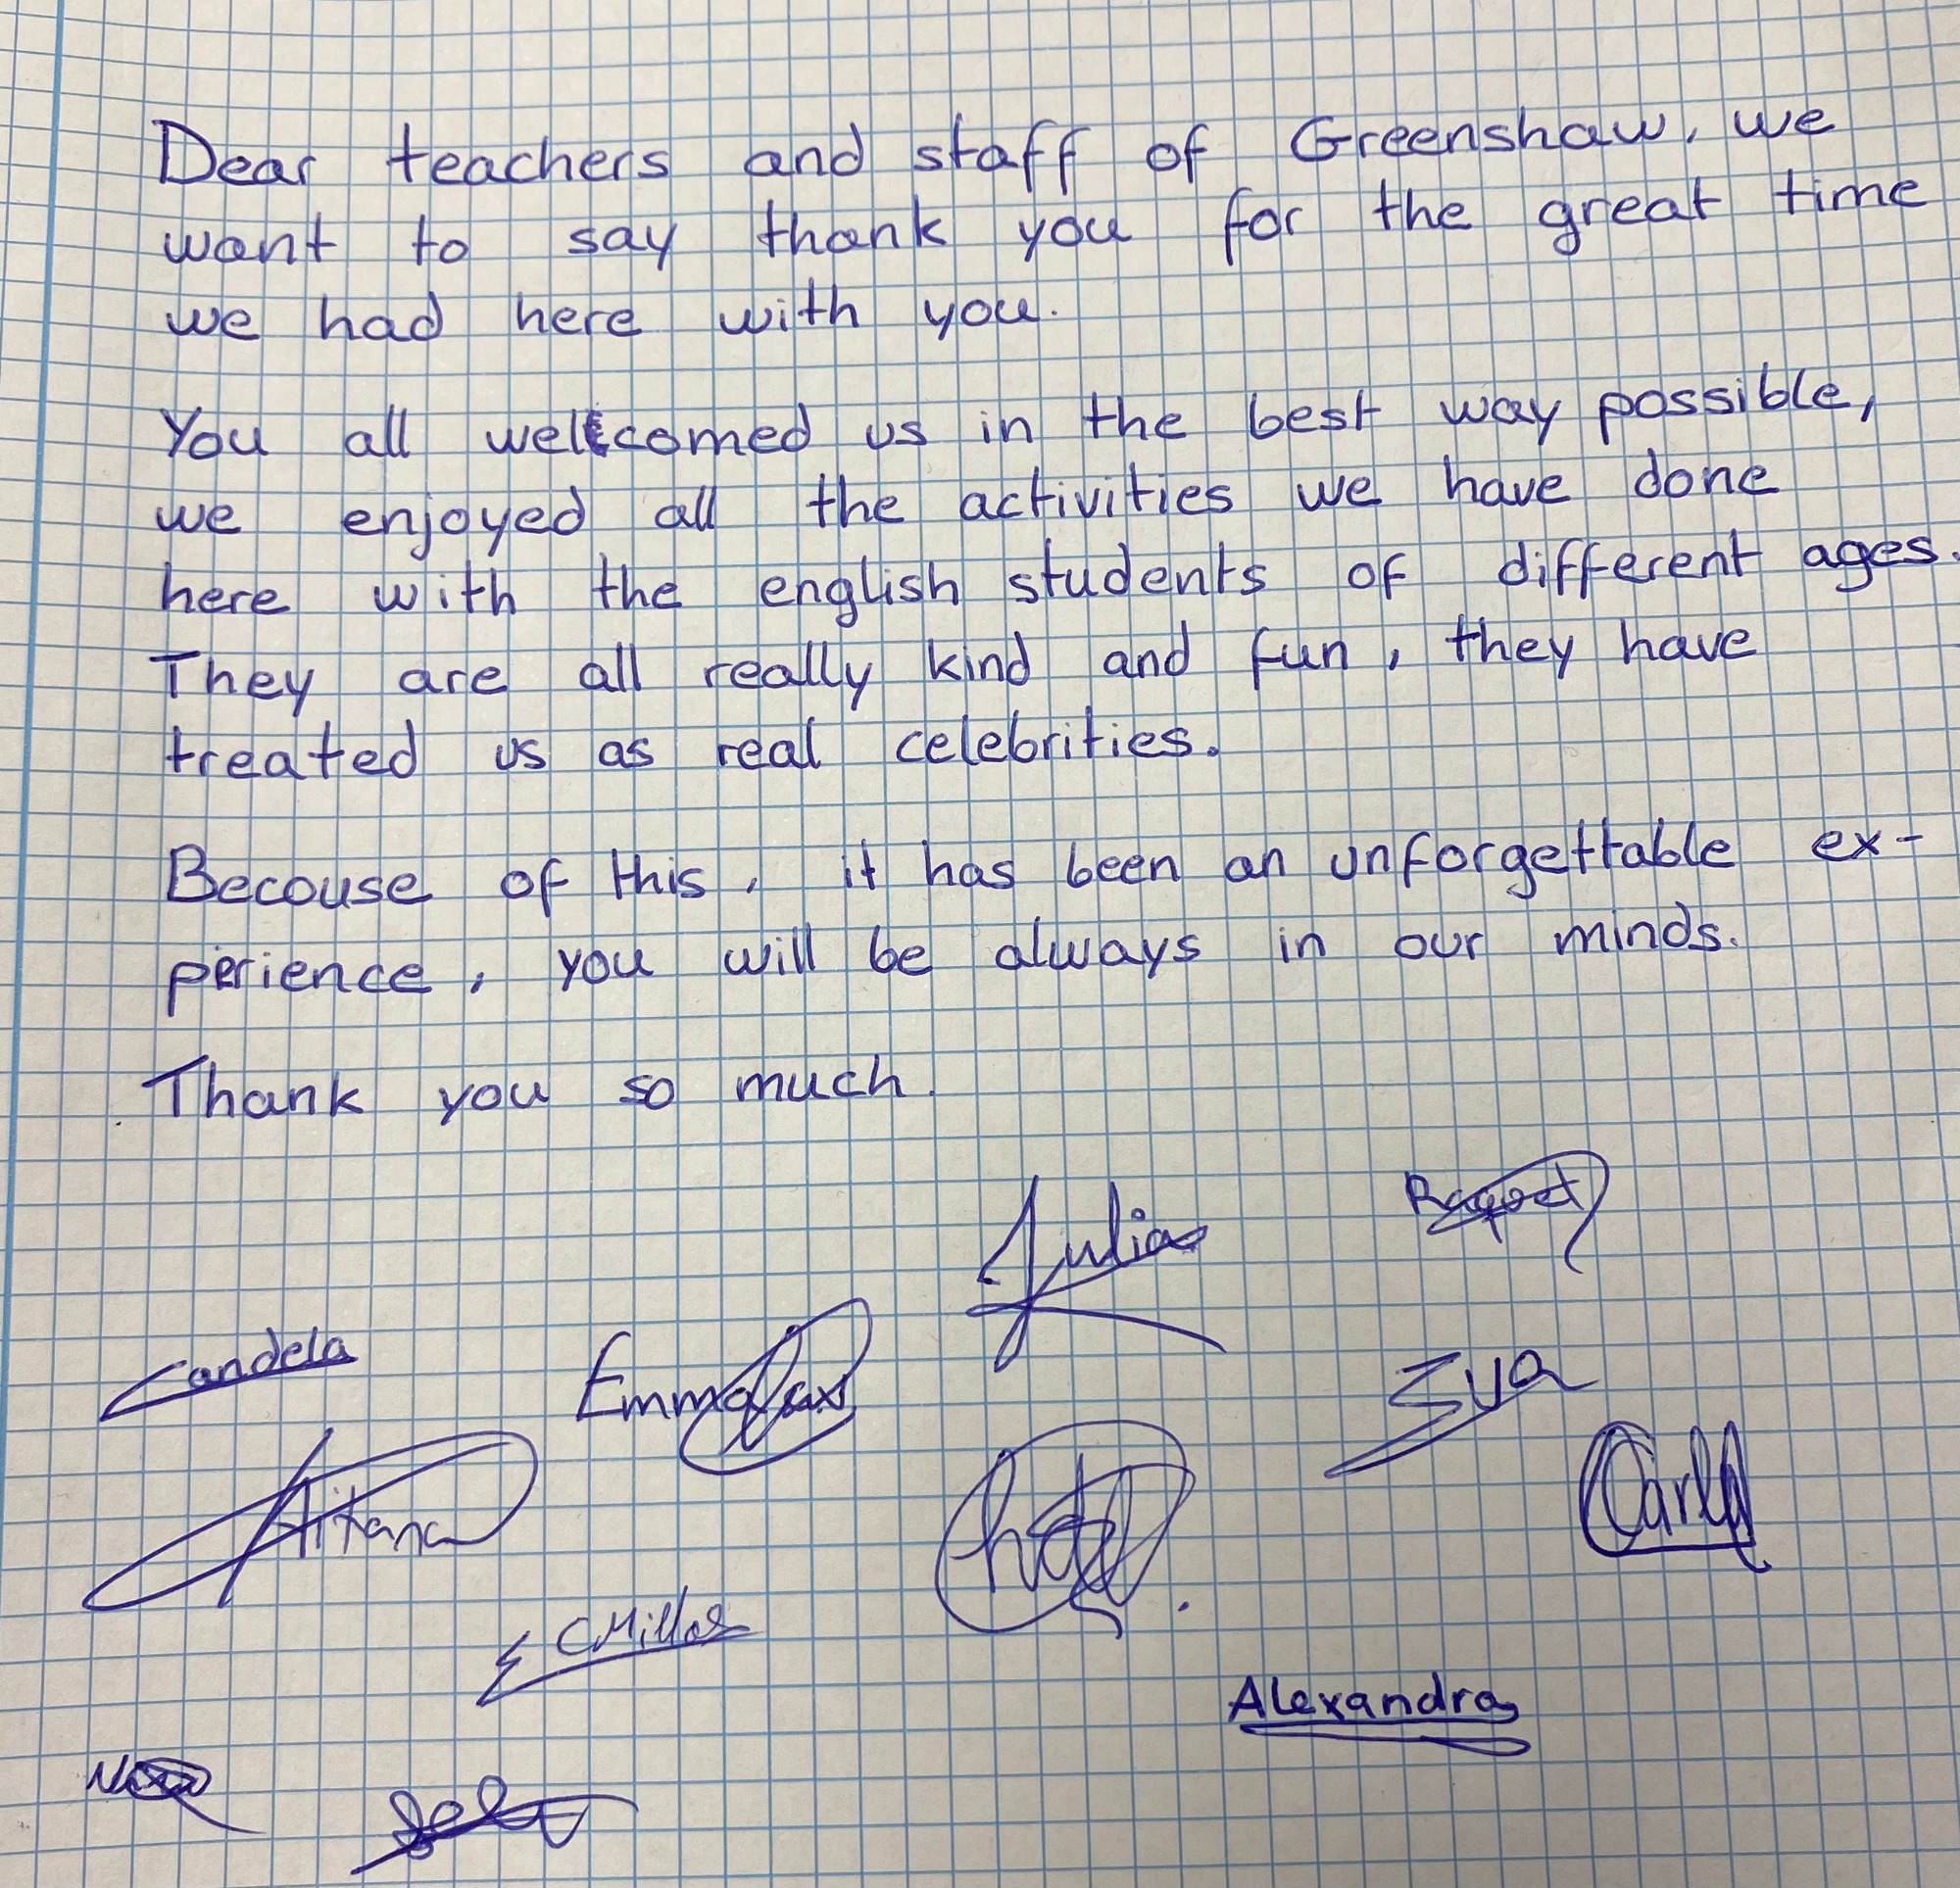 Dear teachers and staff of Greenshaw, we
want to say thank you for the great time
we had here with you.
You all wellcomed us in the best way possible,
we enjoyed all the activities we have done
here with the english students of different ages.
They are all really kind and fun, they have
treated us as real celebrities.
Becouse of this, it has been an unforgettable ex-
perience, you will be always in our minds.
Thank you so much.
Julia Raquel
Candela Emma Eva
Aitana Carla
Alexandra